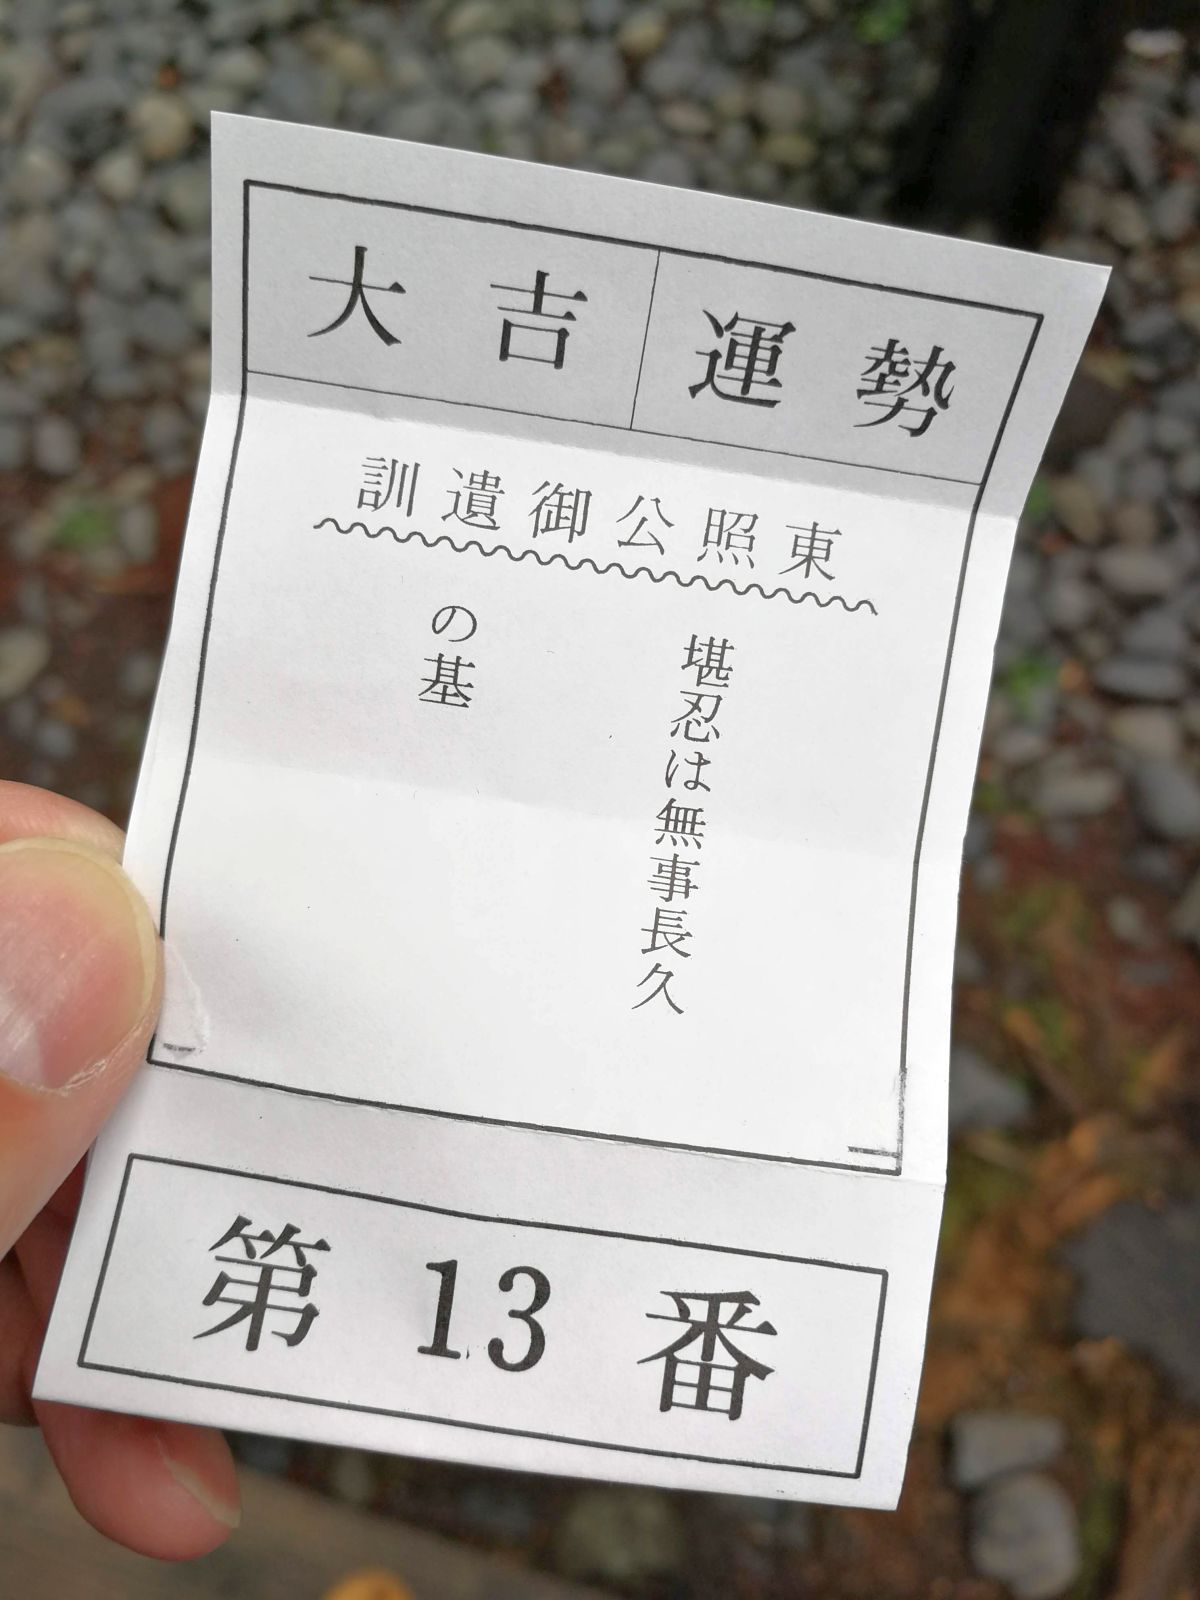 大吉 運勢
東照公御遺訓
堪忍は無事長久
の基
第13番